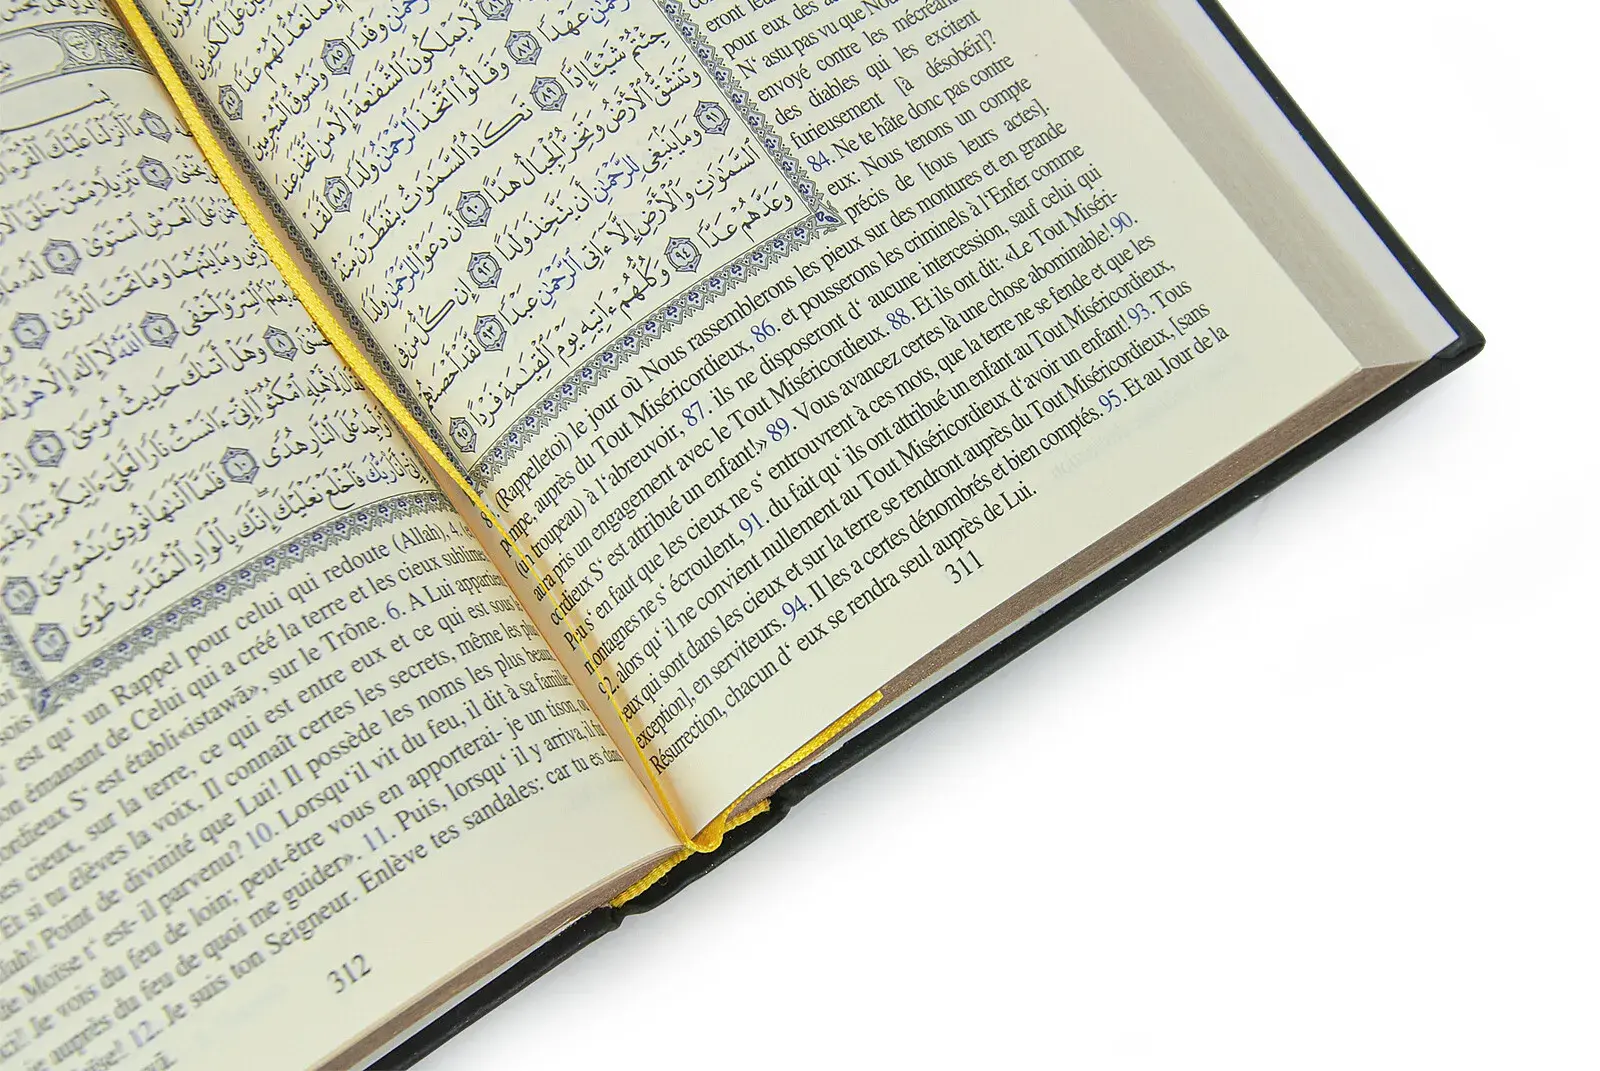 إِنَّمَا نَعُدُّ لَهُمْ عَدًّا ٨٤
ٱلرَّحْمَٰنِ وَفْدًا ٨٥ وَنَسُوقُ ٱلْمُجْرِمِينَ
٨٦ لَّا يَمْلِكُونَ ٱلشَّفَٰعَةَ إِلَّا مَنِ ٱتَّخَذَ عِندَ
ٱلرَّحْمَٰنِ عَهْدًا ٨٧ وَقَالُوا۟ ٱتَّخَذَ ٱلرَّحْمَٰنُ وَلَدًا ٨٨ لَّقَدْ
جِئْتُمْ شَيْـًٔا إِدًّا ٨٩ تَكَادُ ٱلسَّمَٰوَٰتُ يَتَفَطَّرْنَ مِنْهُ
وَتَنشَقُّ ٱلْأَرْضُ وَتَخِرُّ ٱلْجِبَالُ هَدًّا ٩٠ أَن دَعَوْا۟ لِلرَّحْمَٰنِ وَلَدًا
٩١ وَمَا يَنۢبَغِى لِلرَّحْمَٰنِ أَن يَتَّخِذَ وَلَدًا ٩٢ إِن كُلُّ مَن فِى
ٱلسَّمَٰوَٰتِ وَٱلْأَرْضِ إِلَّآ ءَاتِى ٱلرَّحْمَٰنِ عَبْدًا ٩٣ لَّقَدْ أَحْصَىٰهُمْ
وَعَدَّهُمْ عَدًّا ٩٤ وَكُلُّهُمْ ءَاتِيهِ يَوْمَ ٱلْقِيَٰمَةِ فَرْدًا ٩٥
eront leur
pour eux des
N‘ astu pas vu que Nous
envoyé contre les mécréants
des diables qui les excitent
furieusement [à désobéir]?
84. Ne te hâte donc pas contre
eux: Nous tenons un compte
précis de [tous leurs actes].
(Rappelletoi) le jour où Nous rassemblerons les pieux sur des montures et en grande
pompe, auprès du Tout Miséricordieux, 86. et pousserons les criminels à l‘Enfer comme
(un troupeau) à l‘abreuvoir, 87. ils ne disposeront d‘ aucune intercession, sauf celui qui
aura pris un engagement avec le Tout Miséricordieux. 88. Et ils ont dit: «Le Tout Miséri-
cordieux S‘ est attribué un enfant!» 89. Vous avancez certes là une chose abominable! 90.
Peu s‘ en faut que les cieux ne s‘ entrouvrent à ces mots, que la terre ne se fende et que les
montagnes ne s‘ écroulent, 91. du fait qu‘ ils ont attribué un enfant au Tout Miséricordieux,
92. alors qu‘ il ne convient nullement au Tout Miséricordieux d‘avoir un enfant! 93. Tous
ceux qui sont dans les cieux et sur la terre se rendront auprès du Tout Miséricordieux, [sans
exception], en serviteurs. 94. Il les a certes dénombrés et bien comptés. 95. Et au Jour de la
Résurrection, chacun d‘ eux se rendra seul auprès de Lui.
311
مَآ أَنزَلْنَا عَلَيْكَ ٱلْقُرْءَانَ
٣ تَنزِيلًا مِّمَّنْ خَلَقَ
عَلَى ٱلْعَرْشِ ٱسْتَوَىٰ ٥ لَهُۥ
وَمَا بَيْنَهُمَا وَمَا تَحْتَ ٱلثَّرَىٰ ٦
يَعْلَمُ ٱلسِّرَّ وَأَخْفَى ٧ ٱللَّهُ لَآ إِلَٰهَ إِلَّا هُوَ
٨ وَهَلْ أَتَىٰكَ حَدِيثُ مُوسَىٰٓ ٩ إِذْ
لِأَهْلِهِ ٱمْكُثُوٓا۟ إِنِّىٓ ءَانَسْتُ نَارًا لَّعَلِّىٓ ءَاتِيكُم مِّنْهَا
أَجِدُ عَلَى ٱلنَّارِ هُدًى ١٠ فَلَمَّآ أَتَىٰهَا نُودِىَ يَٰمُوسَىٰٓ ١١
رَبُّكَ فَٱخْلَعْ نَعْلَيْكَ إِنَّكَ بِٱلْوَادِ ٱلْمُقَدَّسِ طُوًى ١٢
qu‘ un Rappel pour celui qui redoute (Allah),
émanant de Celui qui a créé la terre et les cieux sublimes
S‘ est établi«istawā», sur le Trône. 6. A Lui appartient
cieux, sur la terre, ce qui est entre eux et ce qui est sous
Et si tu élèves la voix, Il connaît certes les secrets, même les plus
Point de divinité que Lui! Il possède les noms les plus beaux
de Moïse t‘ est- il parvenu? 10. Lorsqu‘il vit du feu, il dit à sa famille
Je vois du feu de loin; peut-être vous en apporterai- je un tison, ou
auprès du feu de quoi me guider». 11. Puis, lorsqu‘ il y arriva, il fut
12. Je suis ton Seigneur. Enlève tes sandales: car tu es dans
312